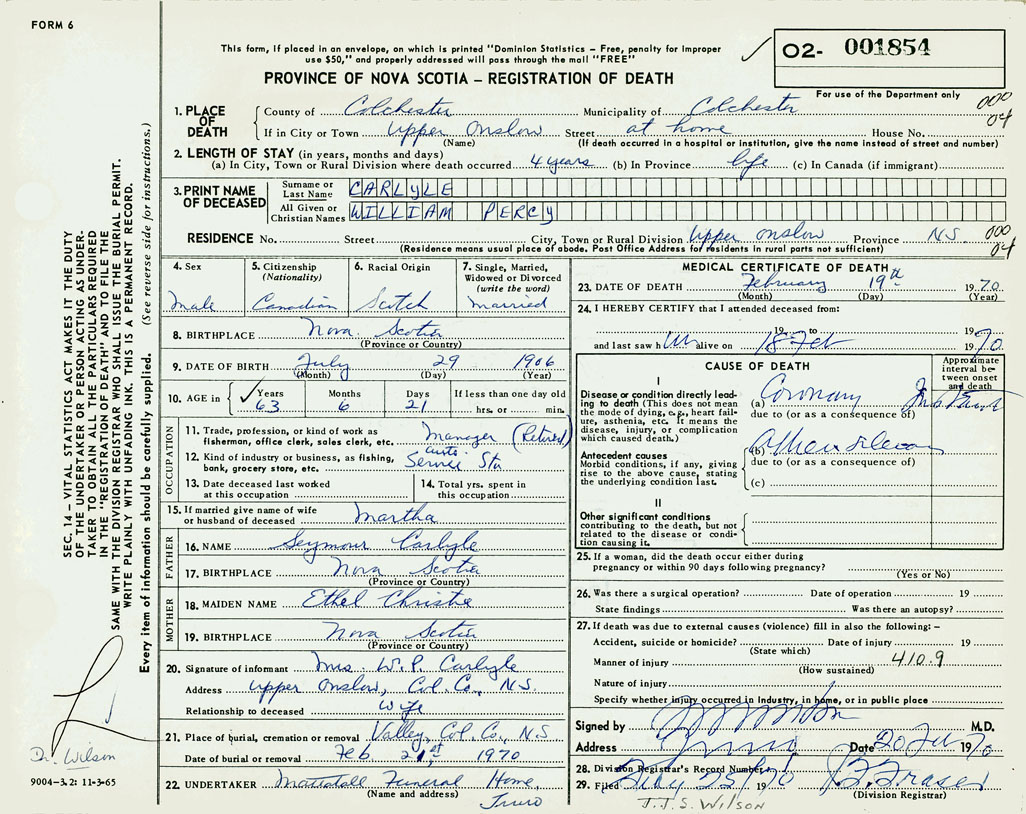 FORM 6
This form, if placed in an envelope, on which is printed "Dominion Statistics – Free, penalty for improper
use $50," and properly addressed will pass through the mail "FREE"
02- 001854
For use of the Department only
PROVINCE OF NOVA SCOTIA – REGISTRATION OF DEATH
000
04
1. PLACE OF DEATH
County of Colchester Municipality of Colchester
If in City or Town Upper Onslow Street at home House No.
(Name) (If death occurred in a hospital or institution, give the name instead of street and number)
2. LENGTH OF STAY (in years, months and days)
(a) In City, Town or Rural Division where death occurred 4 years (b) In Province life (c) In Canada (if immigrant)
3. PRINT NAME OF DECEASED
Surname or Last Name CARLYLE
All Given or Christian Names WILLIAM PERCY
RESIDENCE No. Street City, Town or Rural Division Upper Onslow Province NS 000
(Residence means usual place of abode. Post Office Address for residents in rural parts not sufficient) 04
4. Sex Male
5. Citizenship (Nationality) Canadian
6. Racial Origin Scotch
7. Single, Married, Widowed or Divorced (write the word) Married
8. BIRTHPLACE Nova Scotia
(Province or Country)
9. DATE OF BIRTH July 29 1906
(Month) (Day) (Year)
10. AGE in Years 63 Months 6 Days 21 If less than one day old
hrs. or min.
OCCUPATION
11. Trade, profession, or kind of work as
fisherman, office clerk, sales clerk, etc. Manager (Retired)
12. Kind of industry or business, as fishing,
bank, grocery store, etc. Auto Service Sta
13. Date deceased last worked
at this occupation
14. Total yrs. spent in
this occupation
15. If married give name of wife
or husband of deceased Martha
FATHER
16. NAME Seymour Carlyle
17. BIRTHPLACE Nova Scotia
(Province or Country)
MOTHER
18. MAIDEN NAME Ethel Christie
19. BIRTHPLACE Nova Scotia
(Province or Country)
20. Signature of informant Mrs. W.P. Carlyle
Address Upper Onslow, Col. Co., N.S.
Relationship to deceased Wife
21. Place of burial, cremation or removal Valley, Col. Co., N.S
Date of burial or removal Feb. 21st 1970
22. UNDERTAKER Mattatall Funeral Home,
(Name and address) Truro
MEDICAL CERTIFICATE OF DEATH
23. DATE OF DEATH February 19th 1970
(Month) (Day) (Year)
24. I HEREBY CERTIFY that I attended deceased from:
19 to 19
and last saw him alive on 18 Feb 1970
CAUSE OF DEATH
Approximate interval between onset and death
I
Disease or condition directly leading
to death (This does not mean
the mode of dying, e.g., heart failure,
asthenia, etc. It means the
disease, injury, or complication
which caused death.)
(a) Coronary
due to (or as a consequence of)
Antecedent causes
Morbid conditions, if any, giving
rise to the above cause, stating
the underlying condition last.
(b)
due to (or as a consequence of)
(c)
II
Other significant conditions
contributing to the death, but not
related to the disease or condition
causing it.
25. If a woman, did the death occur either during
pregnancy or within 90 days following pregnancy?
(Yes or No)
26. Was there a surgical operation? Date of operation 19
State findings Was there an autopsy?
27. If death was due to external causes (violence) fill in also the following:–
Accident, suicide or homicide? Date of injury 19
(State which)
Manner of injury 410.9
(How sustained)
Nature of injury
Specify whether injury occurred in industry, in home, or in public place
Signed by M.D.
Address Truro Date 20 Feb 1970
28. Division Registrar's Record Number
29. Filed Feby 23 1970 B. Fraser
(Division Registrar)
J.J.S. WILSON
SEC. 14 – VITAL STATISTICS ACT MAKES IT THE DUTY
OF THE UNDERTAKER OR PERSON ACTING AS UNDERTAKER
TO OBTAIN ALL THE PARTICULARS REQUIRED
IN THE "REGISTRATION OF DEATH" AND TO FILE THE
SAME WITH THE DIVISION REGISTRAR WHO SHALL ISSUE THE BURIAL PERMIT.
WRITE PLAINLY WITH UNFADING INK. THIS IS A PERMANENT RECORD.
Every item of information should be carefully supplied. (See reverse side for instructions.)
Dr. Wilson
9004–3.2: 11-3-65